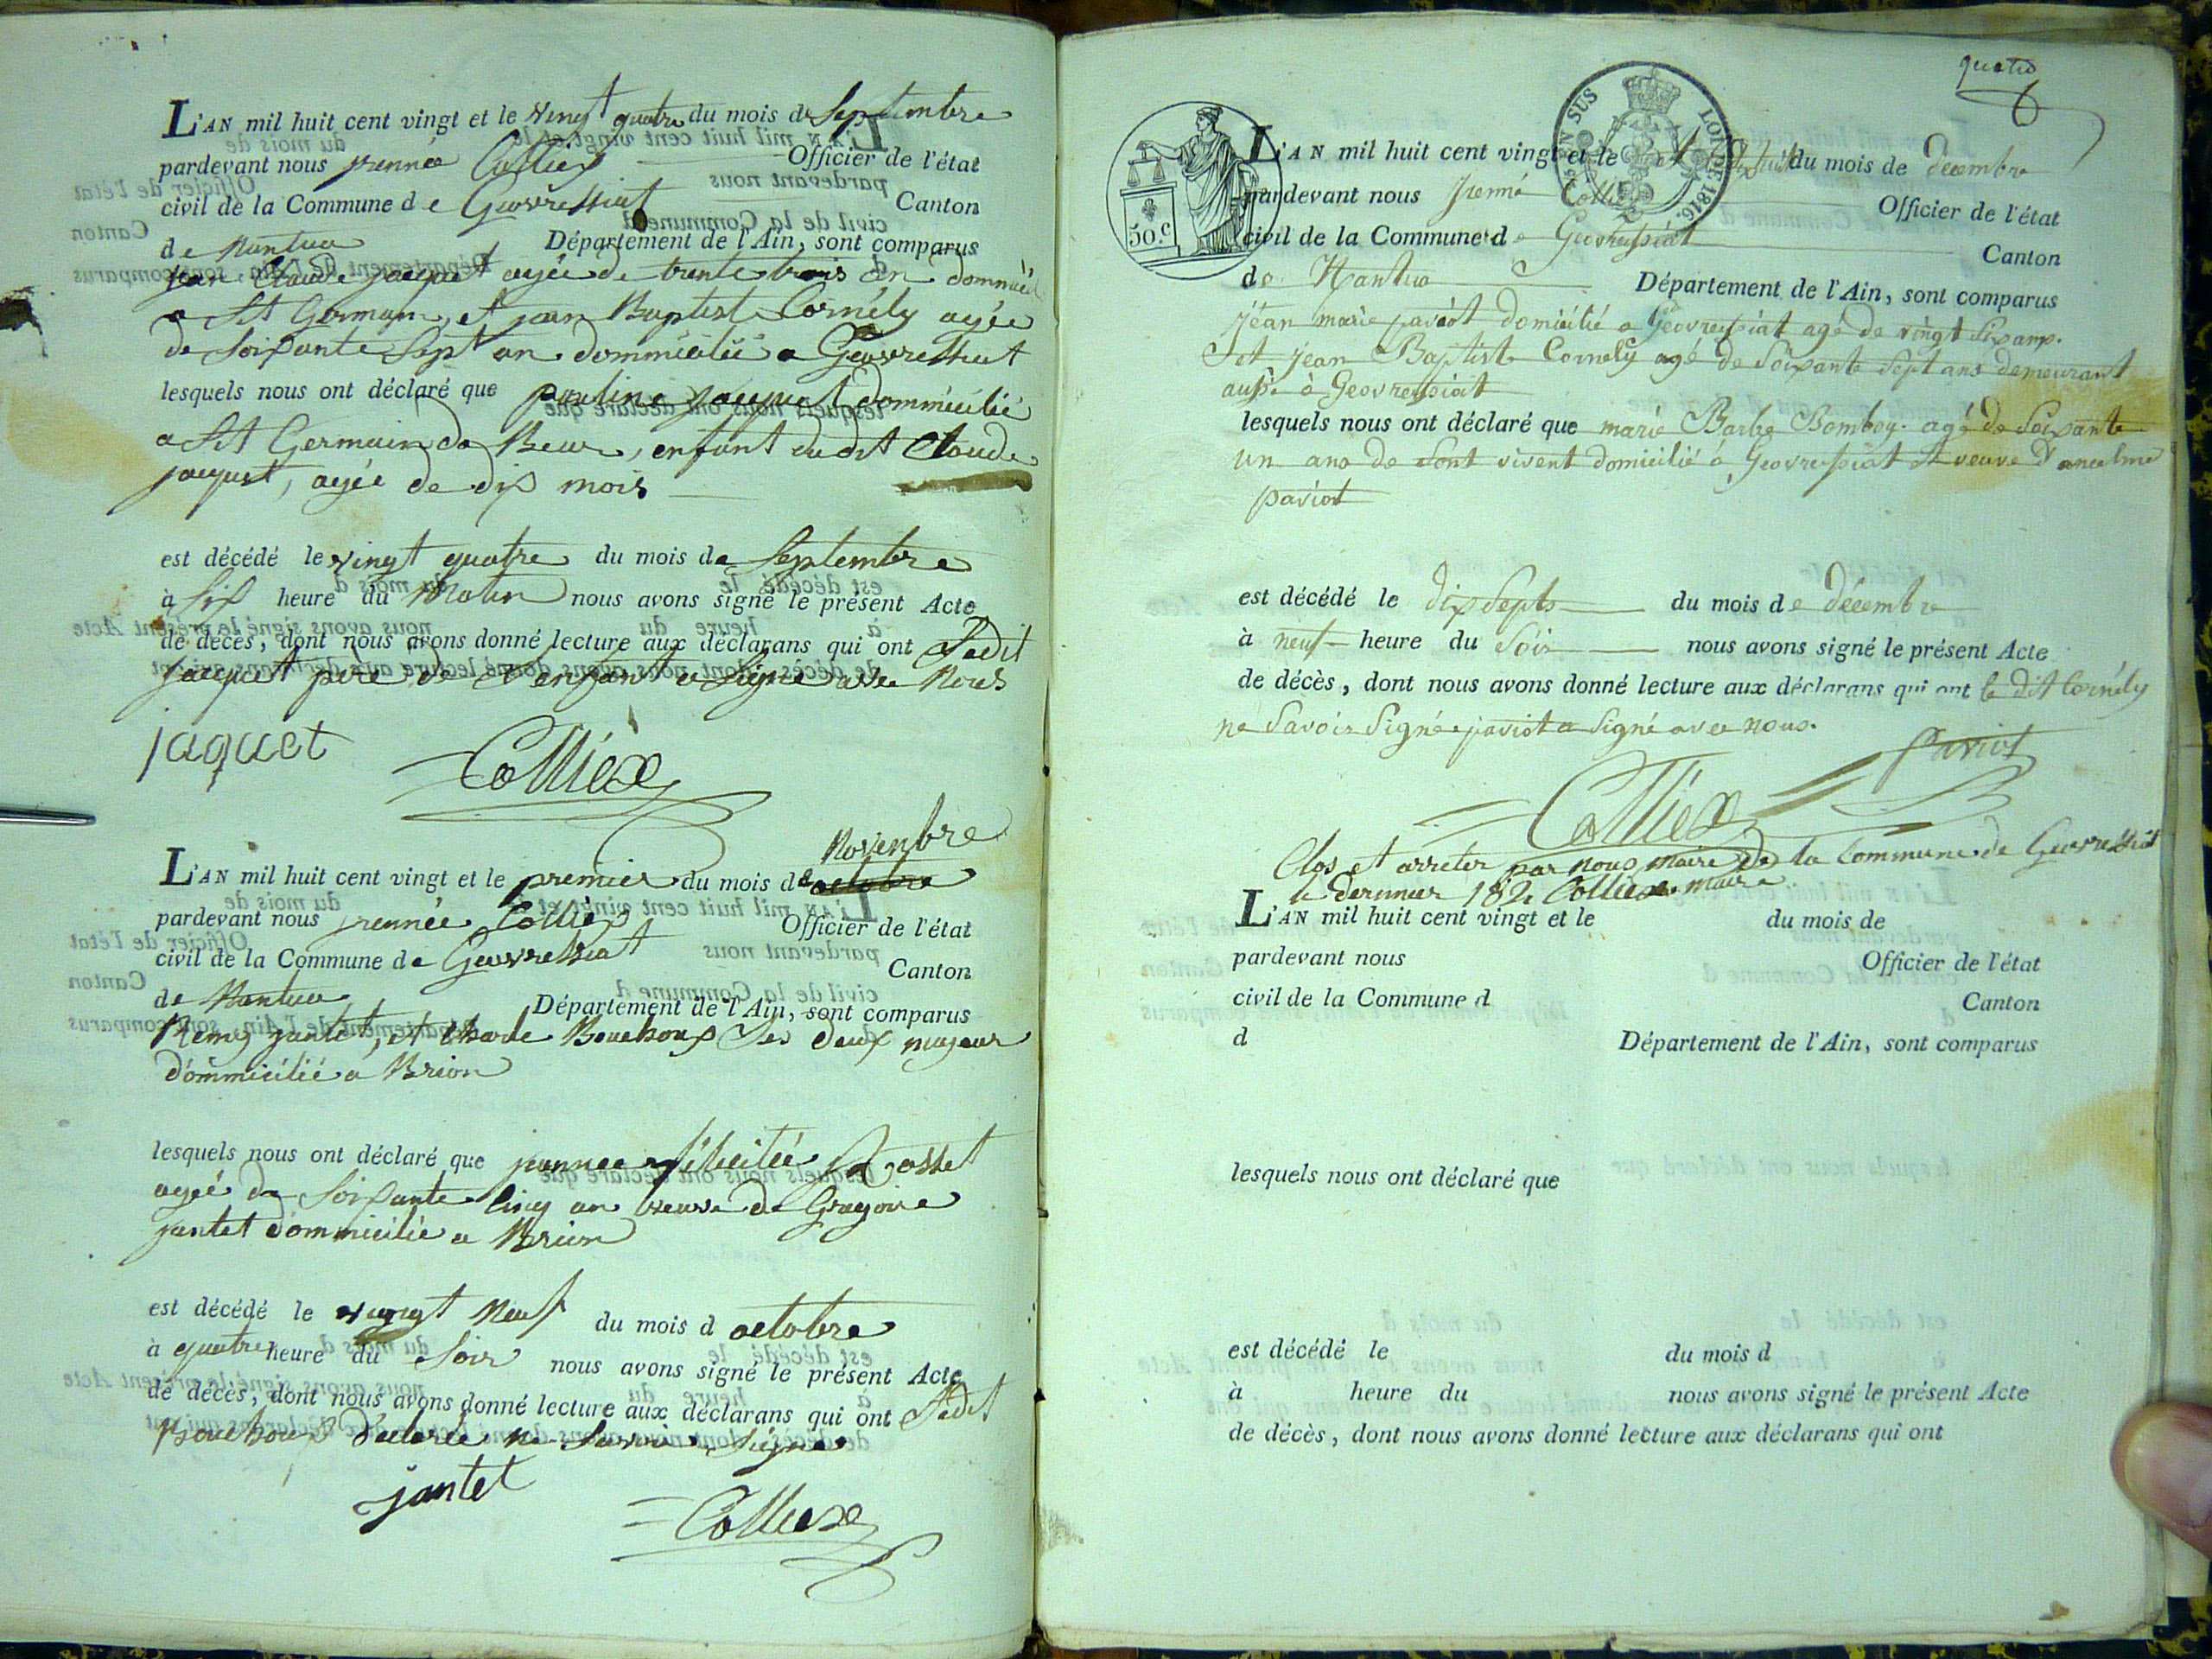 L'AN mil huit cent vingt et le vingt quatre du mois de Septembre
pardevant nous jrennée Colliex Officier de l'état
civil de la Commune de Geovressiat Canton
de Nantua Département de l'Ain, sont comparus
jean Claude jacquet agée de trente trois an dommicil
a St Germain, et jean Baptiste Cornély agée
de Soixante Sept an dommicilié a Geovressiat
lesquels nous ont déclaré que pauline jacquet dommicilié
a St Germain de Beur, enfant dudit Claude
jacquet, agée de dix mois
est décédé le vingt quatre du mois de Septembre
à Six heure du Matin nous avons signé le présent Acte
de décès, dont nous avons donné lecture aux déclarans qui ont Ledit
jacquet père de l'enfant a Signe avec Nous
jaquet
Colliex
Novenbre
L'AN mil huit cent vingt et le premier du mois de octobre
pardevant nous jrennée Colliex Officier de l'état
civil de la Commune de Geovressiat Canton
de Nantua Département de l'Ain, sont comparus
Remy jantet, et Charle Bouchoux les deux majeur
dommicilié a Brion
lesquels nous ont déclaré que jeannee félicitée
ageé de Soixante Cinq an veuve de Gregoire
jantet dommicilié a Brion
est décédé le vingt Neuf du mois d octobre
à quatre heure du Soir nous avons signé le présent Acte
de décès, dont nous avons donné lecture aux déclarans qui ont Ledit
Bouchoux déclarée ne Savoir Signe
jantet
Colliex
quatre
50.C
EN SUS
LOI DE 1816.
L'AN mil huit cent vingt et le du mois de decembre
pardevant nous jrenné Colliex Officier de l'état
civil de la Commune de Geovressiat Canton
de Nantua Département de l'Ain, sont comparus
jean marie paviot domicilié a Geovressiat agé de vingt Six ans.
Et jean Baptiste Cornely agé de Soixante Sept ans demeurant
aussi à Geovressiat
lesquels nous ont déclaré que marie Barbe Bomboy. agé de Soixante
un ans de Sont vivent domicilié a Geovressiat St veuve d'ancelme
paviot
est décédé le dix Septs du mois de décembre
à neuf heure du Soir nous avons signé le présent Acte
de décès, dont nous avons donné lecture aux déclarans qui ont le dit Cornély
ne Savoir Signé. paviot a Signé avec nous.
Paviot
Colliex
Clos et arreter par nous maire de la Commune de Geovressiat
le dernier 182. Colliex maire
L'AN mil huit cent vingt et le du mois de
pardevant nous Officier de l'état
civil de la Commune d Canton
d Département de l'Ain, sont comparus
lesquels nous ont déclaré que
est décédé le du mois d
à heure du nous avons signé le présent Acte
de décès, dont nous avons donné lecture aux déclarans qui ont